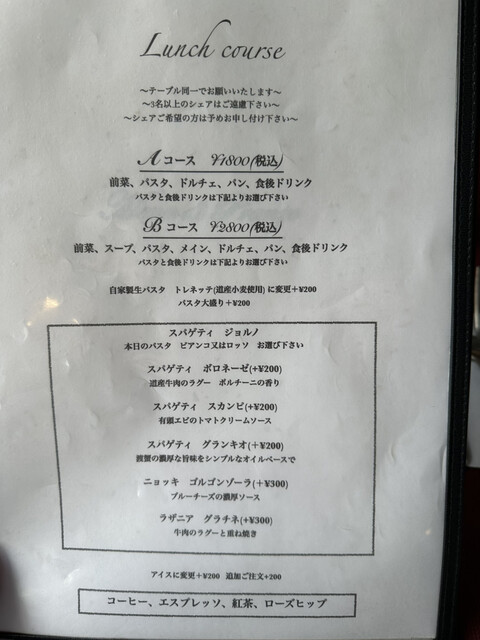 Lunch course
～テーブル同一でお願いいたします～
～3名以上のシェアはご遠慮下さい～
～シェアご希望の方は予めお申し付け下さい～
Aコース ¥1800(税込)
前菜、パスタ、ドルチェ、パン、食後ドリンク
パスタと食後ドリンクは下記よりお選び下さい
Bコース ¥2800(税込)
前菜、スープ、パスタ、メイン、ドルチェ、パン、食後ドリンク
パスタと食後ドリンクは下記よりお選び下さい
自家製生パスタ トレネッテ(道産小麦使用)に変更+¥200
パスタ大盛り+¥200
スパゲティ ジョルノ
本日のパスタ ビアンコ又はロッソ お選び下さい
スパゲティ ボロネーゼ(+¥200)
道産牛肉のラグー ポルチーニの香り
スパゲティ スカンピ(+¥200)
有頭エビのトマトクリームソース
スパゲティ グランキオ(+¥200)
渡蟹の濃厚な旨味をシンプルなオイルベースで
ニョッキ ゴルゴンゾーラ(+¥300)
ブルーチーズの濃厚ソース
ラザニア グラチネ(+¥300)
牛肉のラグーと重ね焼き
アイスに変更+¥200 追加ご注文+200
コーヒー、エスプレッソ、紅茶、ローズヒップ